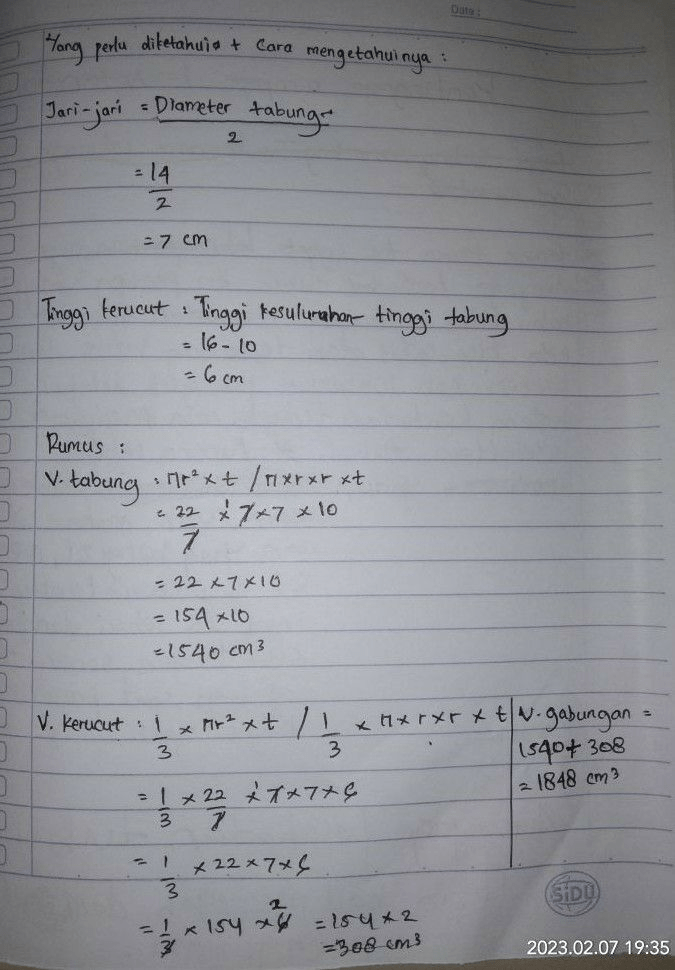 Date :
Yang perlu diketahui + Cara mengetahuinya :
Jari-jari = Diameter tabung
2
= 14
2
= 7 cm
Tinggi kerucut : Tinggi kesulurahan - tinggi tabung
= 16 - 10
= 6 cm
Rumus :
V. tabung : πr² × t / π×r×r ×t
= 22 × 7 × 7 × 10
7
1
= 22 × 7 × 10
= 154 × 10
= 1540 cm³
V. kerucut : 1 × πr² × t / 1 × π×r×r × t
3 3
= 1 × 22 × 7 × 7 × 6
3 7
1
= 1 × 22 × 7 × 6
3
2
= 1 × 154 × 6 = 154 × 2
3
= 308 cm³
V. gabungan =
1540 + 308
= 1848 cm³
SiDU
2023.02.07 19:35